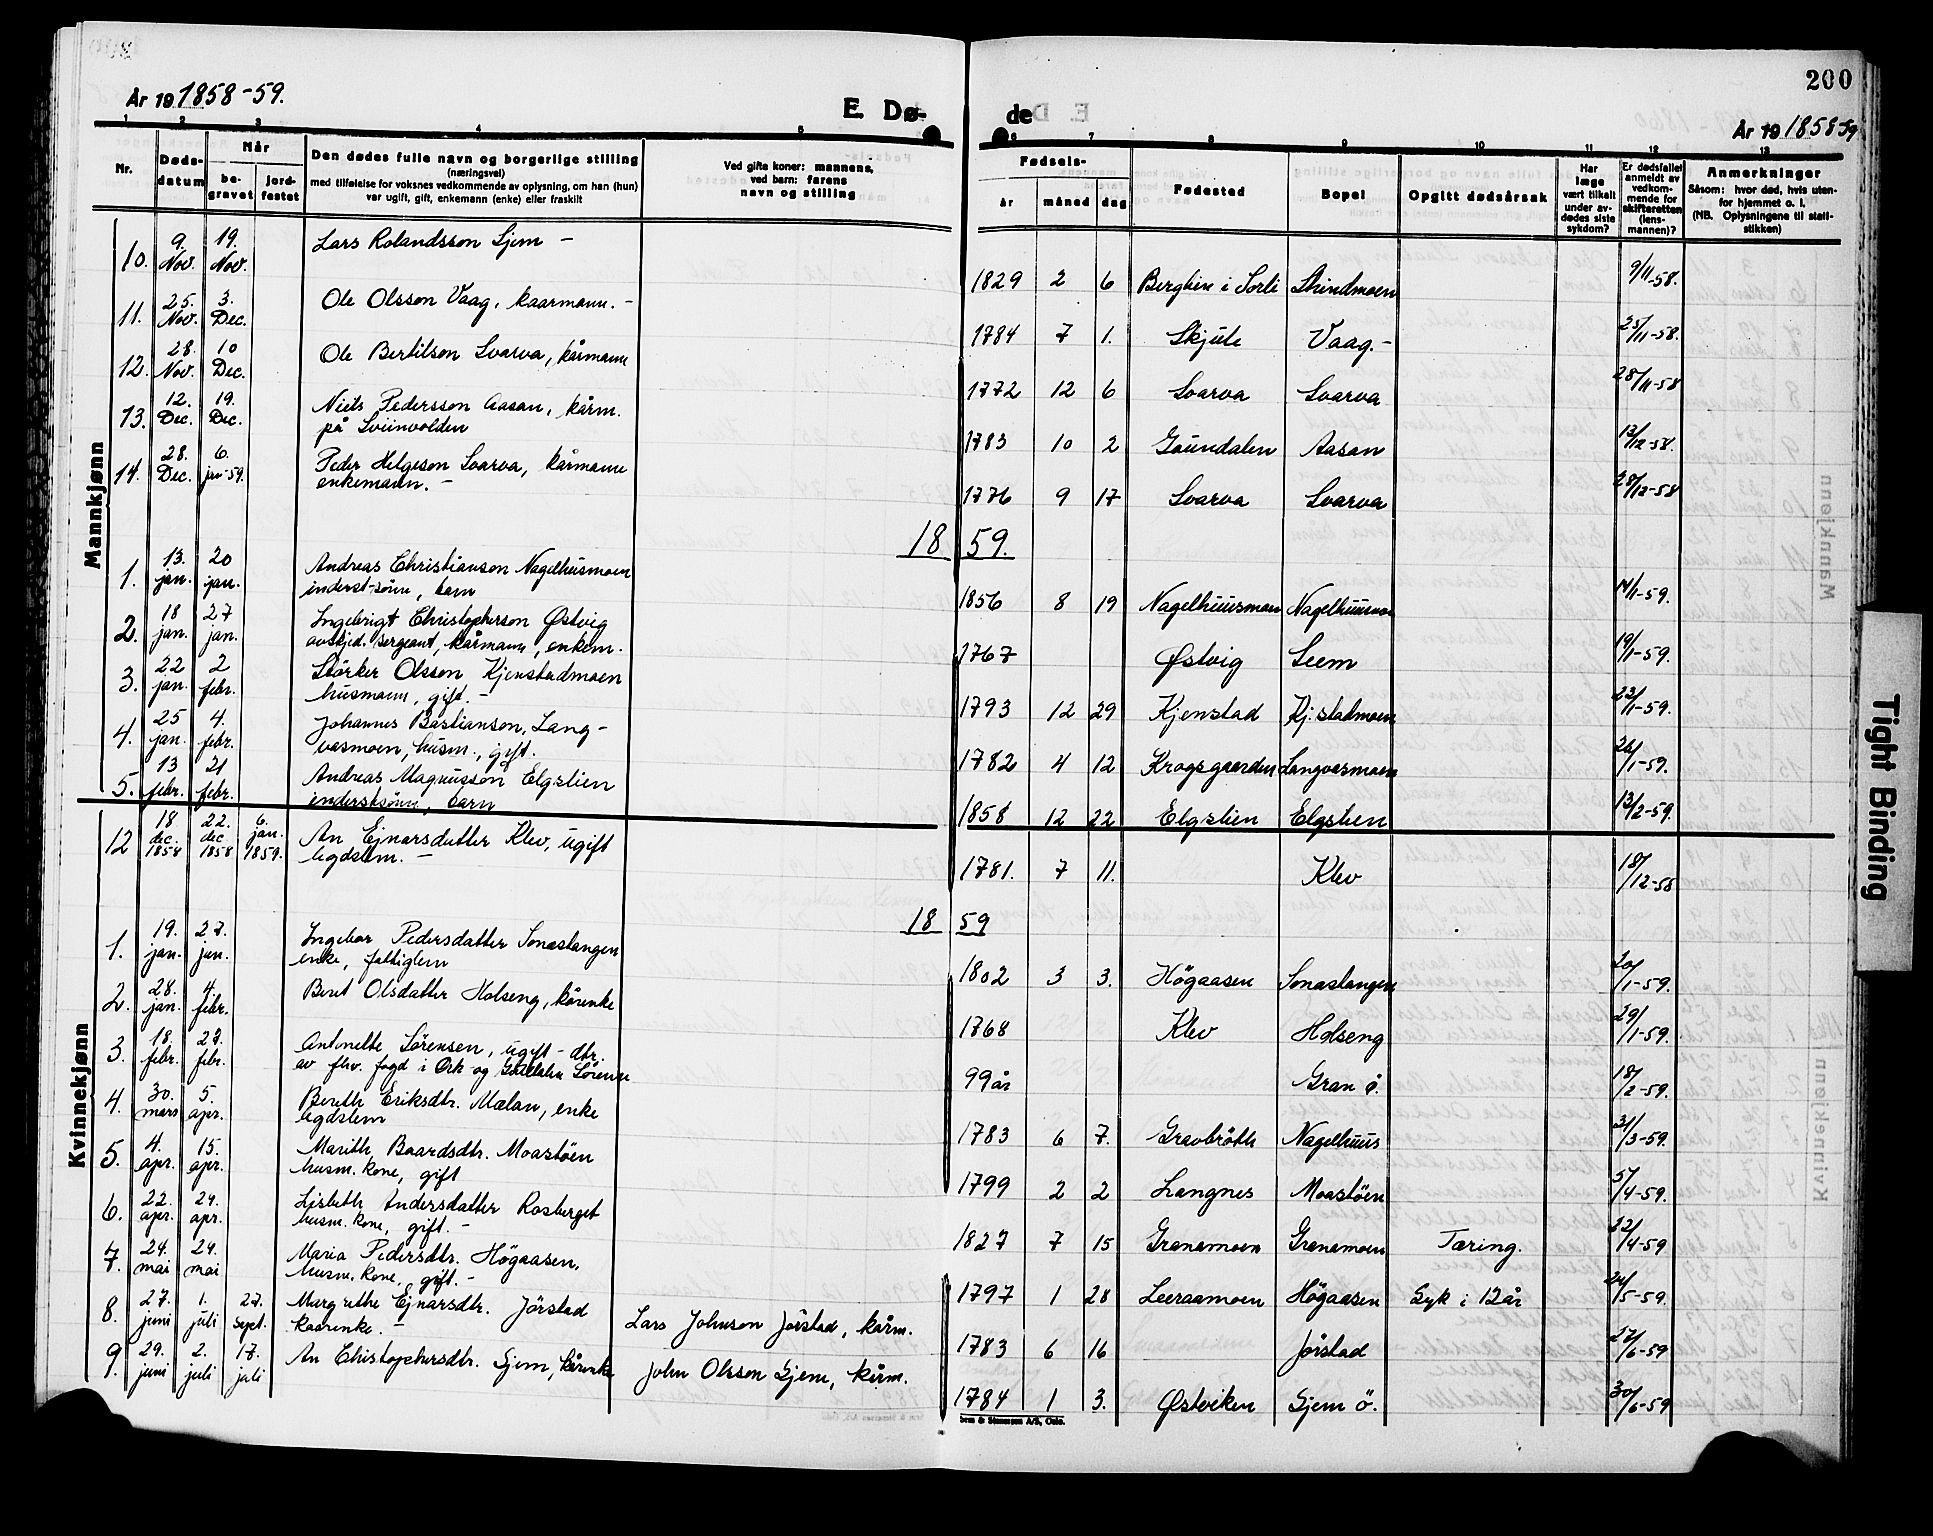 200
År 19 1858-59.
E. Dø-
de
År 19 1858-59
1 2 3 4 5
6 7 8 9 10 11 12 13
Nr.
Døds-
datum
Når
be-
gravet
jord-
festet
Den dødes fulle navn og borgerlige stilling
(næringsvei)
med tilføielse for voksnes vedkommende av oplysning, om han (hun)
var ugift, gift, enkemann (enke) eller fraskilt
Ved gifte koner: mannens,
ved barn: farens
navn og stilling
Fødsels-
år måned dag
Fødested
Bopel
Opgitt dødsårsak
Har
læge
vært tilkalt
under av-
dødes siste
sykdom?
Er dødsfallet
anmeldt av
vedkom-
mende for
skifteretten
(lens-
mannen)?
Anmerkninger
Såsom: hvor død, hvis uten-
for hjemmet o. l.
(NB. Oplysningene til stati-
stikken)
Mannkjønn
10. 9. Nov. 19. Nov. Lars Rolandsson Gjem - 1829 2 6 Berglien i Sørli 9/11-58.
11. 25. Nov. 3. Dec. Ole Olsson Vaag, kaarmann. - 1784 7 1. Skjute Vaag.- 25/11-58.
12. 28. Nov. 10 Dec. Ole Bertilson Svarva, kårmann 1772 12 6 Svarva Svarva 28/11-58
13. 12. Dec. 19. Dec. Niels Pedersson Aasan, kårm.
på 1783 10 2 Gaundalen Aasan 13/12-58.
14. 28. Dec. 6. jan-59. Peder Helgeson Svarva, kårmann
enkemann. - 1776 9 17 Svarva Svarva 28/12-58
18 59.
1. 13. jan. 20 jan. Andreas Christianson Nagelhusmoen
inderst-sønn, barn 1856 8 19 Nagelhuusmoen 14/1-59.
2. 18 jan. 27 jan. Ingebrigt Christopherson Østvig
avskjed. sergeant, kårmann, enkem. 1767 Østvig Seem 19/1-59.
3. 22 jan. 2 febr. Stærker Olsson Kjenstadmoen
husmann, gift. - 1793 12 29 Kjenstad Kj.stadmoen 23/1-59.
4. 25 jan. 4. febr. Johannes Bastianson, Lang-
vasmoen, husm., gift. 1782 4 12 Krogsgaarden Langvasmoen 26/1-59.
5. 13 febr. 21 febr. Andreas Magnusson Elgslien
inderstsønn, barn 1858 12 22 Elgslien Elgslien 13/2-59.
Kvinnekjønn
12 18 dec. 1858 22. dec 1858 6. jan. 1859. An Ejnarsdatter Klev, ugift
legdslem. - 1781. 7 11. Klev 18/12-58
18 59
1. 19. jan. 27. jan. Ingebor Pedersdatter Sonastangen
enke, fattiglem 1802 3 3. Högaasen Sonastangen 20/1-59.
2. 28. jan. 4. febr. Beret Olsdatter Holseng, kårenke 1768 Klev Holseng 29/1-59.
3. 18. febr. 27. febr. Antonette Sörensen, ugift - dtr.
av fhv. fogd i Ork- og Guldalen Sörensen 99 år Gran ö. 18/2-59.
4. 30. mars 5. apr. Bereth Eriksdtr. Mælan, enke
legdslem 1783 6 7. Gravbröth Nagelhuus 31/3-59.
5. 4. apr. 15. apr. Marith Baardsdtr. Moastöen
husm. kone, gift 1799 2 2 Langnes Moastöen 5/4-59.
6. 22. apr. 24. apr. Lisbeth Andersdatter Rosberget
husm. kone, gift. - 1827 7 15 Granamoen Granamoen Tæring. 22/4-59
7. 24. mai 29. mai Maria Pedersdtr. Högaasen,
husm. kone, gift. - 1797 1 28 Leeraamoen Högaasen Syk i 12 år 24/5-59.
8. 27. juni 1. juli 27. sept. Margrethe Ejnarsdtr. Jörstad
kaarenke. - Lars Johnson Jörstad, kårm. 1783 6 16 Jörstad 27/6-59
9. 29. juni 2. juli 17. juli An Christophersdtr. Gjem, kårenke John Olsson Gjem, kårm. 1784 1 3. Østviken Gjem ö. 30/6-59
Tight Binding